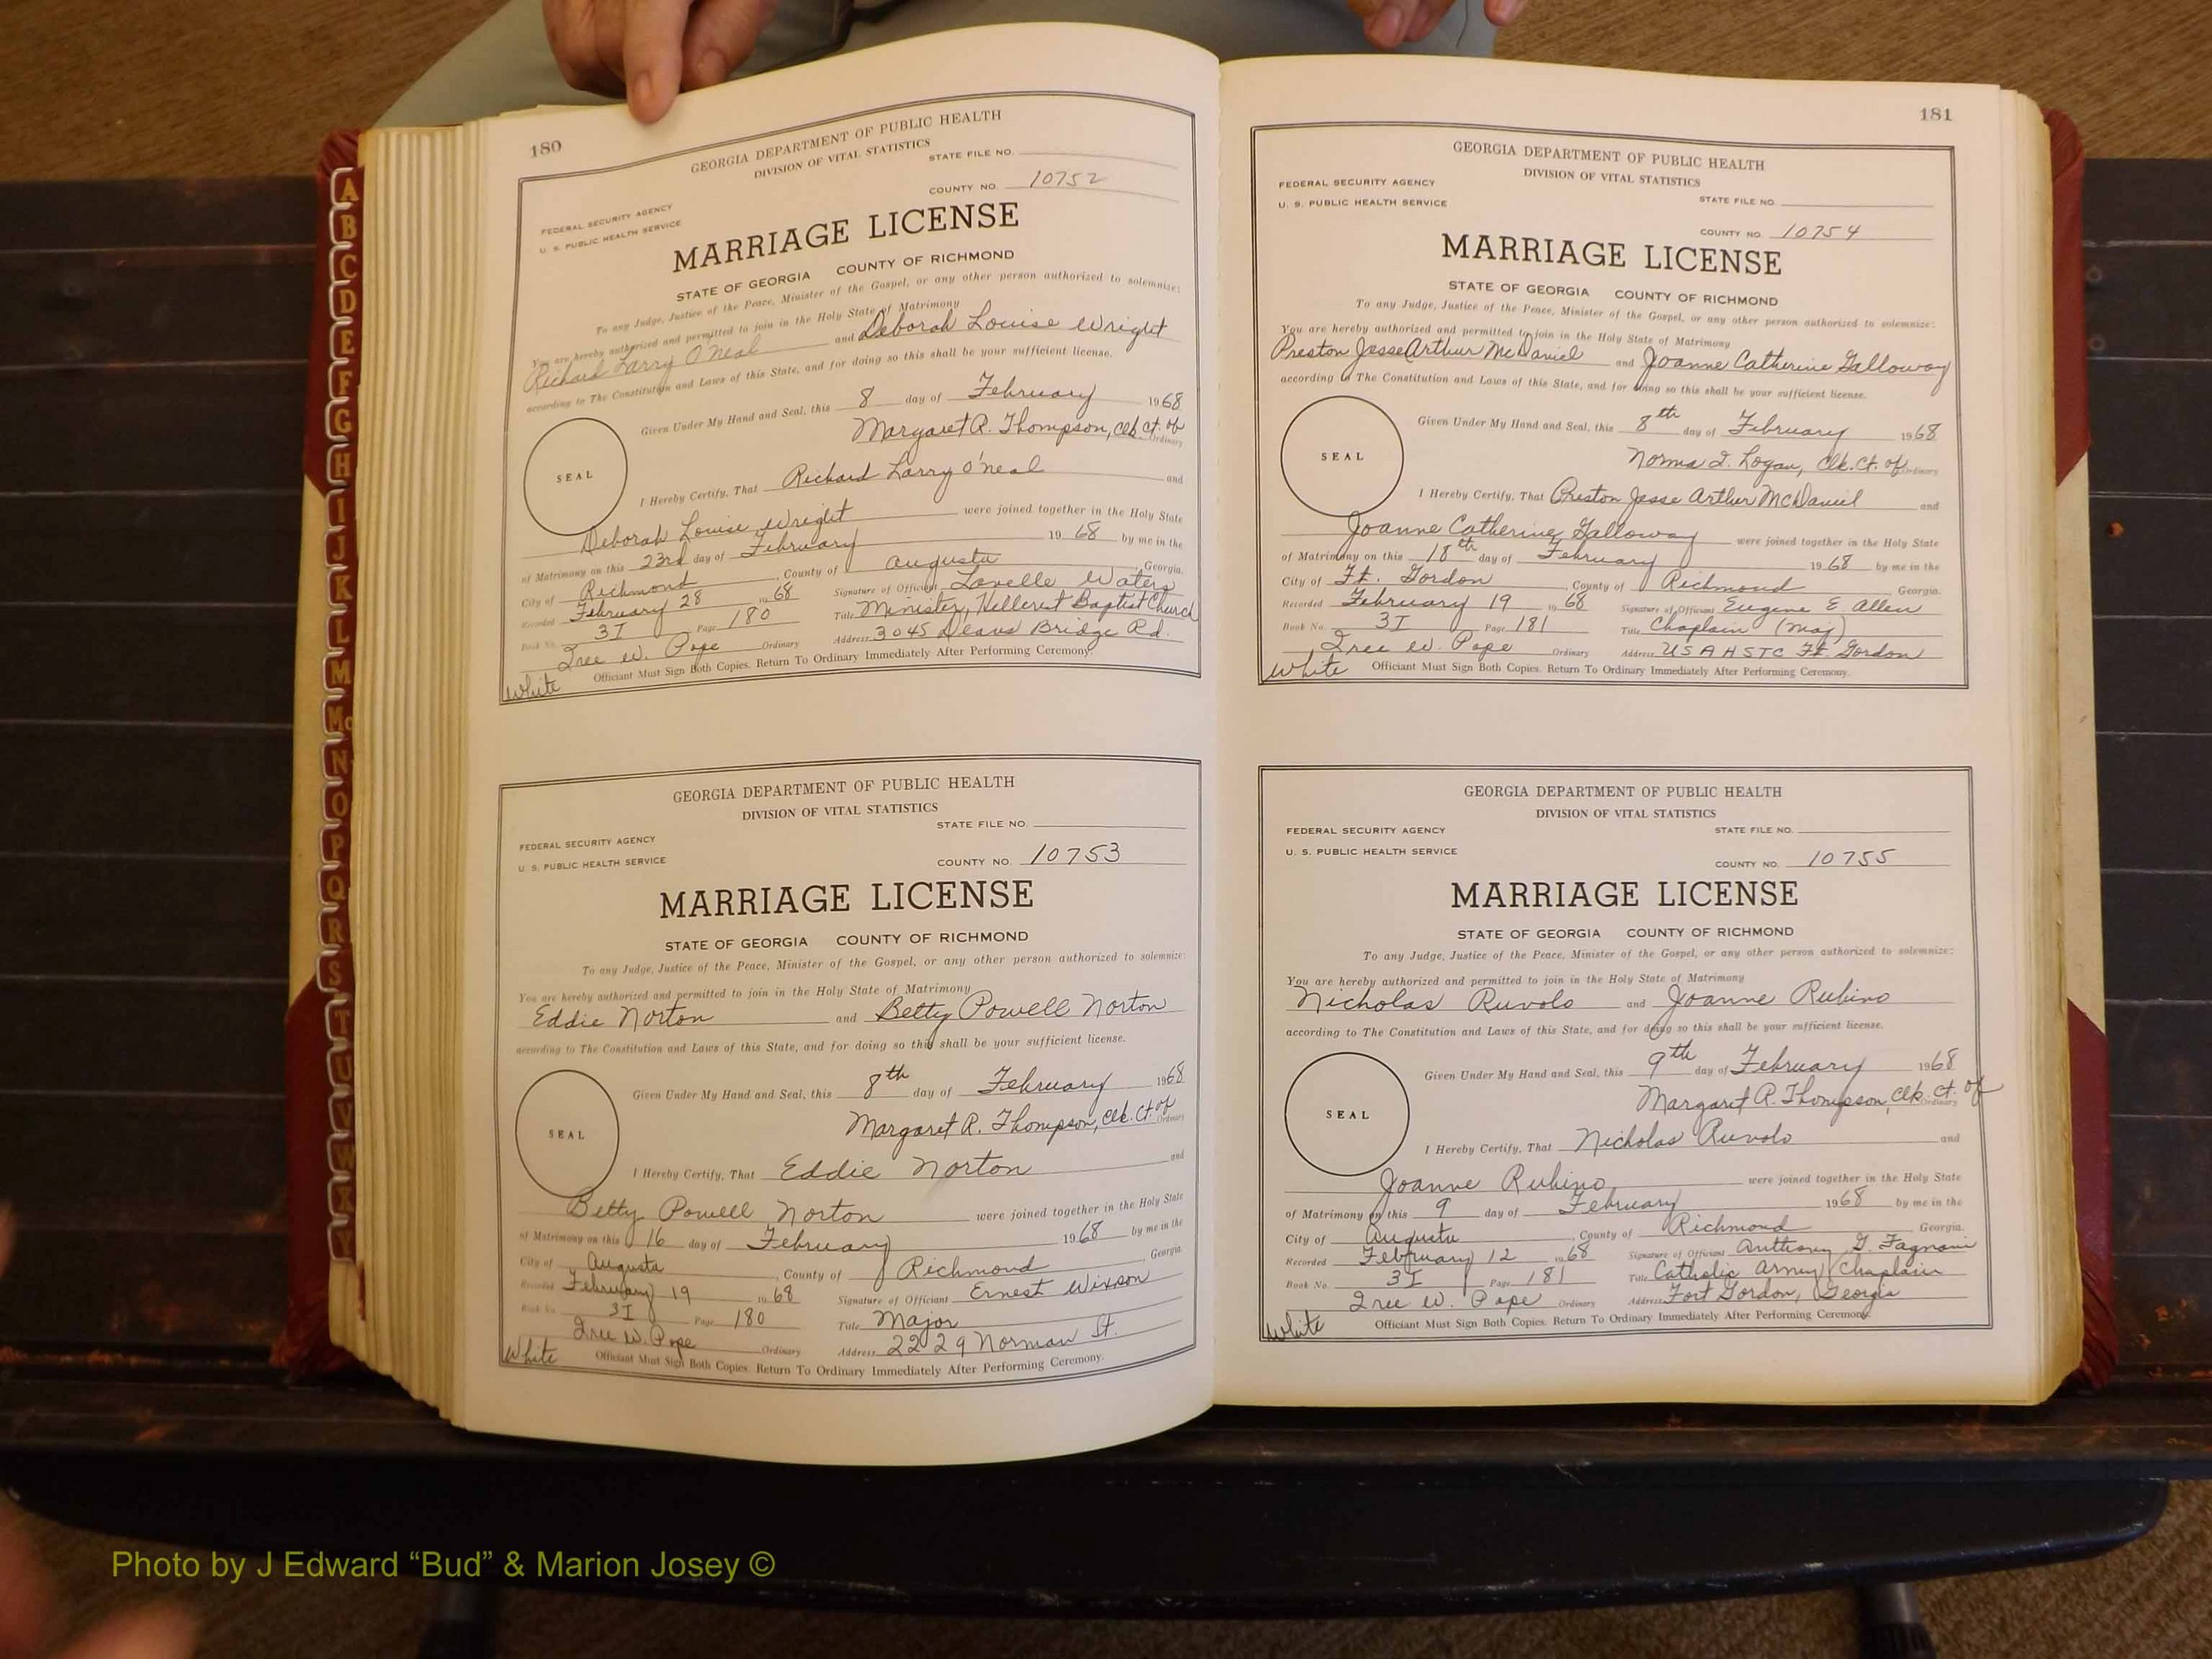 180
GEORGIA DEPARTMENT OF PUBLIC HEALTH
DIVISION OF VITAL STATISTICS
STATE FILE NO.
COUNTY NO. 10752
FEDERAL SECURITY AGENCY
U. S. PUBLIC HEALTH SERVICE
MARRIAGE LICENSE
STATE OF GEORGIA COUNTY OF RICHMOND
To any Judge, Justice of the Peace, Minister of the Gospel, or any other person authorized to solemnize:
You are hereby authorized and permitted to join in the Holy State of Matrimony
Richard Larry O'Neal and Deborah Louise Wright
according to The Constitution and Laws of this State, and for doing so this shall be your sufficient license.
Given Under My Hand and Seal, this 8 day of February 1968
Margaret R. Thompson, Clk. Ct. of Ordinary
SEAL
I Hereby Certify, That Richard Larry O'neal and
Deborah Louise Wright were joined together in the Holy State
of Matrimony on this 23rd day of February 1968 by me in the
City of Richmond, County of Augusta, Georgia.
Recorded February 28 1968 Signature of Officiant Lavelle Waters
Book No. 3I Page 180 Title Minister, Hillcrest Baptist Church
Iree W. Pope Ordinary Address 3045 Deans Bridge Rd.
White Officiant Must Sign Both Copies. Return To Ordinary Immediately After Performing Ceremony.
GEORGIA DEPARTMENT OF PUBLIC HEALTH
DIVISION OF VITAL STATISTICS
STATE FILE NO.
FEDERAL SECURITY AGENCY
U. S. PUBLIC HEALTH SERVICE
COUNTY NO. 10753
MARRIAGE LICENSE
STATE OF GEORGIA COUNTY OF RICHMOND
To any Judge, Justice of the Peace, Minister of the Gospel, or any other person authorized to solemnize:
You are hereby authorized and permitted to join in the Holy State of Matrimony
Eddie Norton and Betty Powell Norton
according to The Constitution and Laws of this State, and for doing so this shall be your sufficient license.
Given Under My Hand and Seal, this 8th day of February 1968
Margaret R. Thompson, Clk. Ct. of Ordinary
SEAL
I Hereby Certify, That Eddie Norton and
Betty Powell Norton were joined together in the Holy State
of Matrimony on this 16 day of February 1968 by me in the
City of Augusta, County of Richmond, Georgia.
Recorded February 19 1968 Signature of Officiant Ernest Wixson
Book No. 3I Page 180 Title Major
Iree W. Pope Ordinary Address 2229 Norman St.
White Officiant Must Sign Both Copies. Return To Ordinary Immediately After Performing Ceremony.
181
GEORGIA DEPARTMENT OF PUBLIC HEALTH
DIVISION OF VITAL STATISTICS
FEDERAL SECURITY AGENCY
U. S. PUBLIC HEALTH SERVICE
STATE FILE NO.
COUNTY NO. 10754
MARRIAGE LICENSE
STATE OF GEORGIA COUNTY OF RICHMOND
To any Judge, Justice of the Peace, Minister of the Gospel, or any other person authorized to solemnize:
You are hereby authorized and permitted to join in the Holy State of Matrimony
Preston Jesse Arthur McDaniel and Joanne Catherine Galloway
according to The Constitution and Laws of this State, and for doing so this shall be your sufficient license.
Given Under My Hand and Seal, this 8th day of February 1968
Norma I. Logan, Clk. Ct. of Ordinary
SEAL
I Hereby Certify, That Preston Jesse Arthur McDaniel and
Joanne Catherine Galloway were joined together in the Holy State
of Matrimony on this 18th day of February 1968 by me in the
City of Ft. Gordon, County of Richmond Georgia.
Recorded February 19 1968 Signature of Officiant Eugene E Allen
Book No. 3I Page 181 Title Chaplain (Maj)
Iree W. Pope Ordinary Address USAHSTC Ft. Gordon
White Officiant Must Sign Both Copies. Return To Ordinary Immediately After Performing Ceremony.
GEORGIA DEPARTMENT OF PUBLIC HEALTH
DIVISION OF VITAL STATISTICS
FEDERAL SECURITY AGENCY
STATE FILE NO.
U. S. PUBLIC HEALTH SERVICE
COUNTY NO. 10755
MARRIAGE LICENSE
STATE OF GEORGIA COUNTY OF RICHMOND
To any Judge, Justice of the Peace, Minister of the Gospel, or any other person authorized to solemnize:
You are hereby authorized and permitted to join in the Holy State of Matrimony
Nicholas Ruvolo and Joanne Rubino
according to The Constitution and Laws of this State, and for doing so this shall be your sufficient license.
Given Under My Hand and Seal, this 9th day of February 1968
Margaret R. Thompson, Clk. Ct. of Ordinary
SEAL
I Hereby Certify, That Nicholas Ruvolo and
Joanne Rubino were joined together in the Holy State
of Matrimony on this 9 day of February 1968 by me in the
City of Augusta, County of Richmond, Georgia.
Recorded February 12 1968 Signature of Officiant Anthony G. Fagnani
Book No. 3I Page 181 Title Catholic Army Chaplain
Iree W. Pope Ordinary Address Fort Gordon, Georgia
White Officiant Must Sign Both Copies. Return To Ordinary Immediately After Performing Ceremony.
A
B
C
D
E
F
G
H
I
J
K
L
M
Mc
N
O
P
Q
R
S
T
U
V
W
X
Y
Photo by J Edward “Bud” & Marion Josey ©